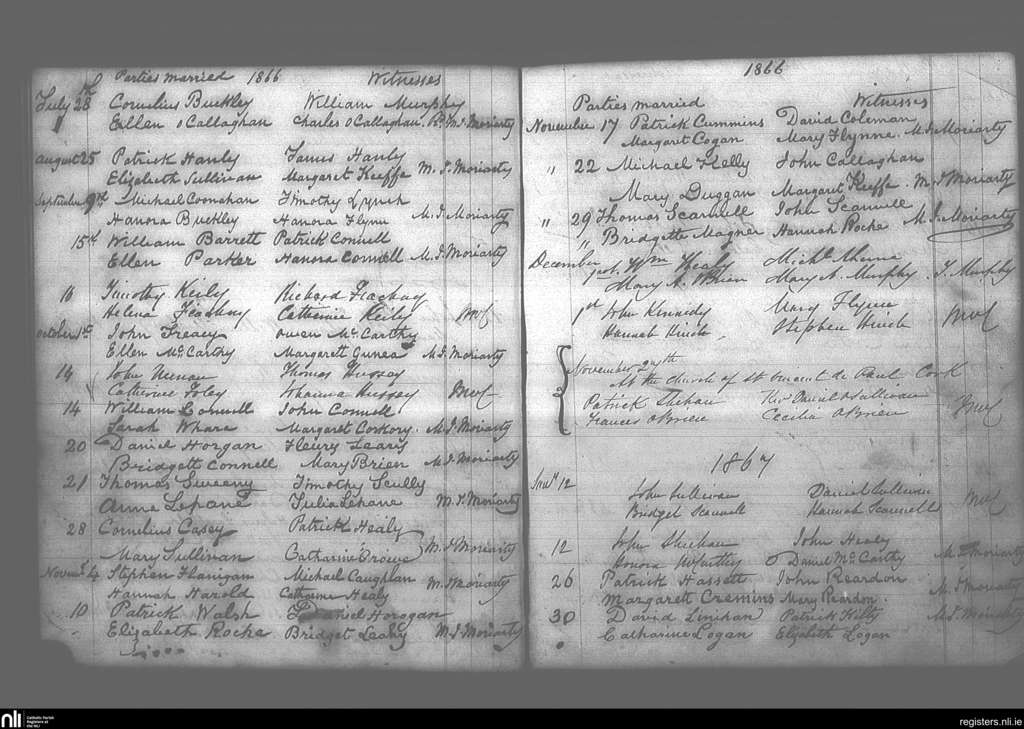 Parties married 1866 Witnesses
July 28th Cornelius Buckley William Murphy
Ellen O Callaghan Charles O Callaghan Rv M. J. Moriarty
August 25 Patrick Hanly James Hanly
Elizabeth Sullivan Margaret Keeffe M. J. Moriarty
September 9th Michael Coonahan Timothy Lynch
Hanora Buckley Hanora Flynn M. J. Moriarty
15th William Barrett Patrick Connell
Ellen Parker Hanora Connell M. J. Moriarty
16 Timothy Keily Richard
Helena Catherine Keily
October 1st John Treacy Owen McCarthy
Ellen McCarthy Margarett Gunea M. J. Moriarty
14 John Thomas Hussey
Catherine Foley Johanna Hussey
14 William Connell John Connell
Sarah Margaret Corkory M. J. Moriarty
20 Daniel Horgan Fleury Lears
Bridgett Connell Mary Brien M. J. Moriarty
21 Thomas Sweeny Timothy Scully
Anne Lepane Julia Lepane M. J. Moriarty
28 Cornelius Casey Patrick Healy
Mary Sullivan Catharine M. J. Moriarty
Novemr 4 Stephen Flanigan Michael Caughlan
Hannah Harold Catherine Healy M. J. Moriarty
10 Patrick Walsh Daniel Horogan
Elizabeth Roche Bridget Leahy M. J. Moriarty
1866
Parties married Witnesses
November 17 Patrick Cummins David Coleman
Margart Cogan Mary Flynne M. J. Moriarty
" 22 Michael Kelly John Callaghan
Mary Duggan Margaret Keeffe M. J. Moriarty
" 29 Thomas Scannell John Scannell
" Bridgette Magner Hannah Roche M. J. Moriarty
December Wm Healy Michl Aherne
Mary A. OBrien Mary A. Murphy J. Murphy
1st John Kennedy Mary Flynn
Hannah Hinch Stephen Hinch
November 27th
At the Church of St Vincent de Paul Cork
Patrick Revd Daniel O Sullivan
Frances OBrien Cecilia OBrien
1867
12 John Sullivan Daniel Sullivan
Bridget Scannell Hannah Scannell
12 John Sheehan John Healy
Honora Daniel McCarthy M. J. Moriarty
26 Patrick Hassett John Reardon
Margarett Cremins Mary Reardon M. J. Moriarty
30 David Linihan Patrick Kilty M. J. Moriarty
Catharine Logan Elizabeth Logan
nli Catholic Parish Registers at the NLI
registers.nli.ie